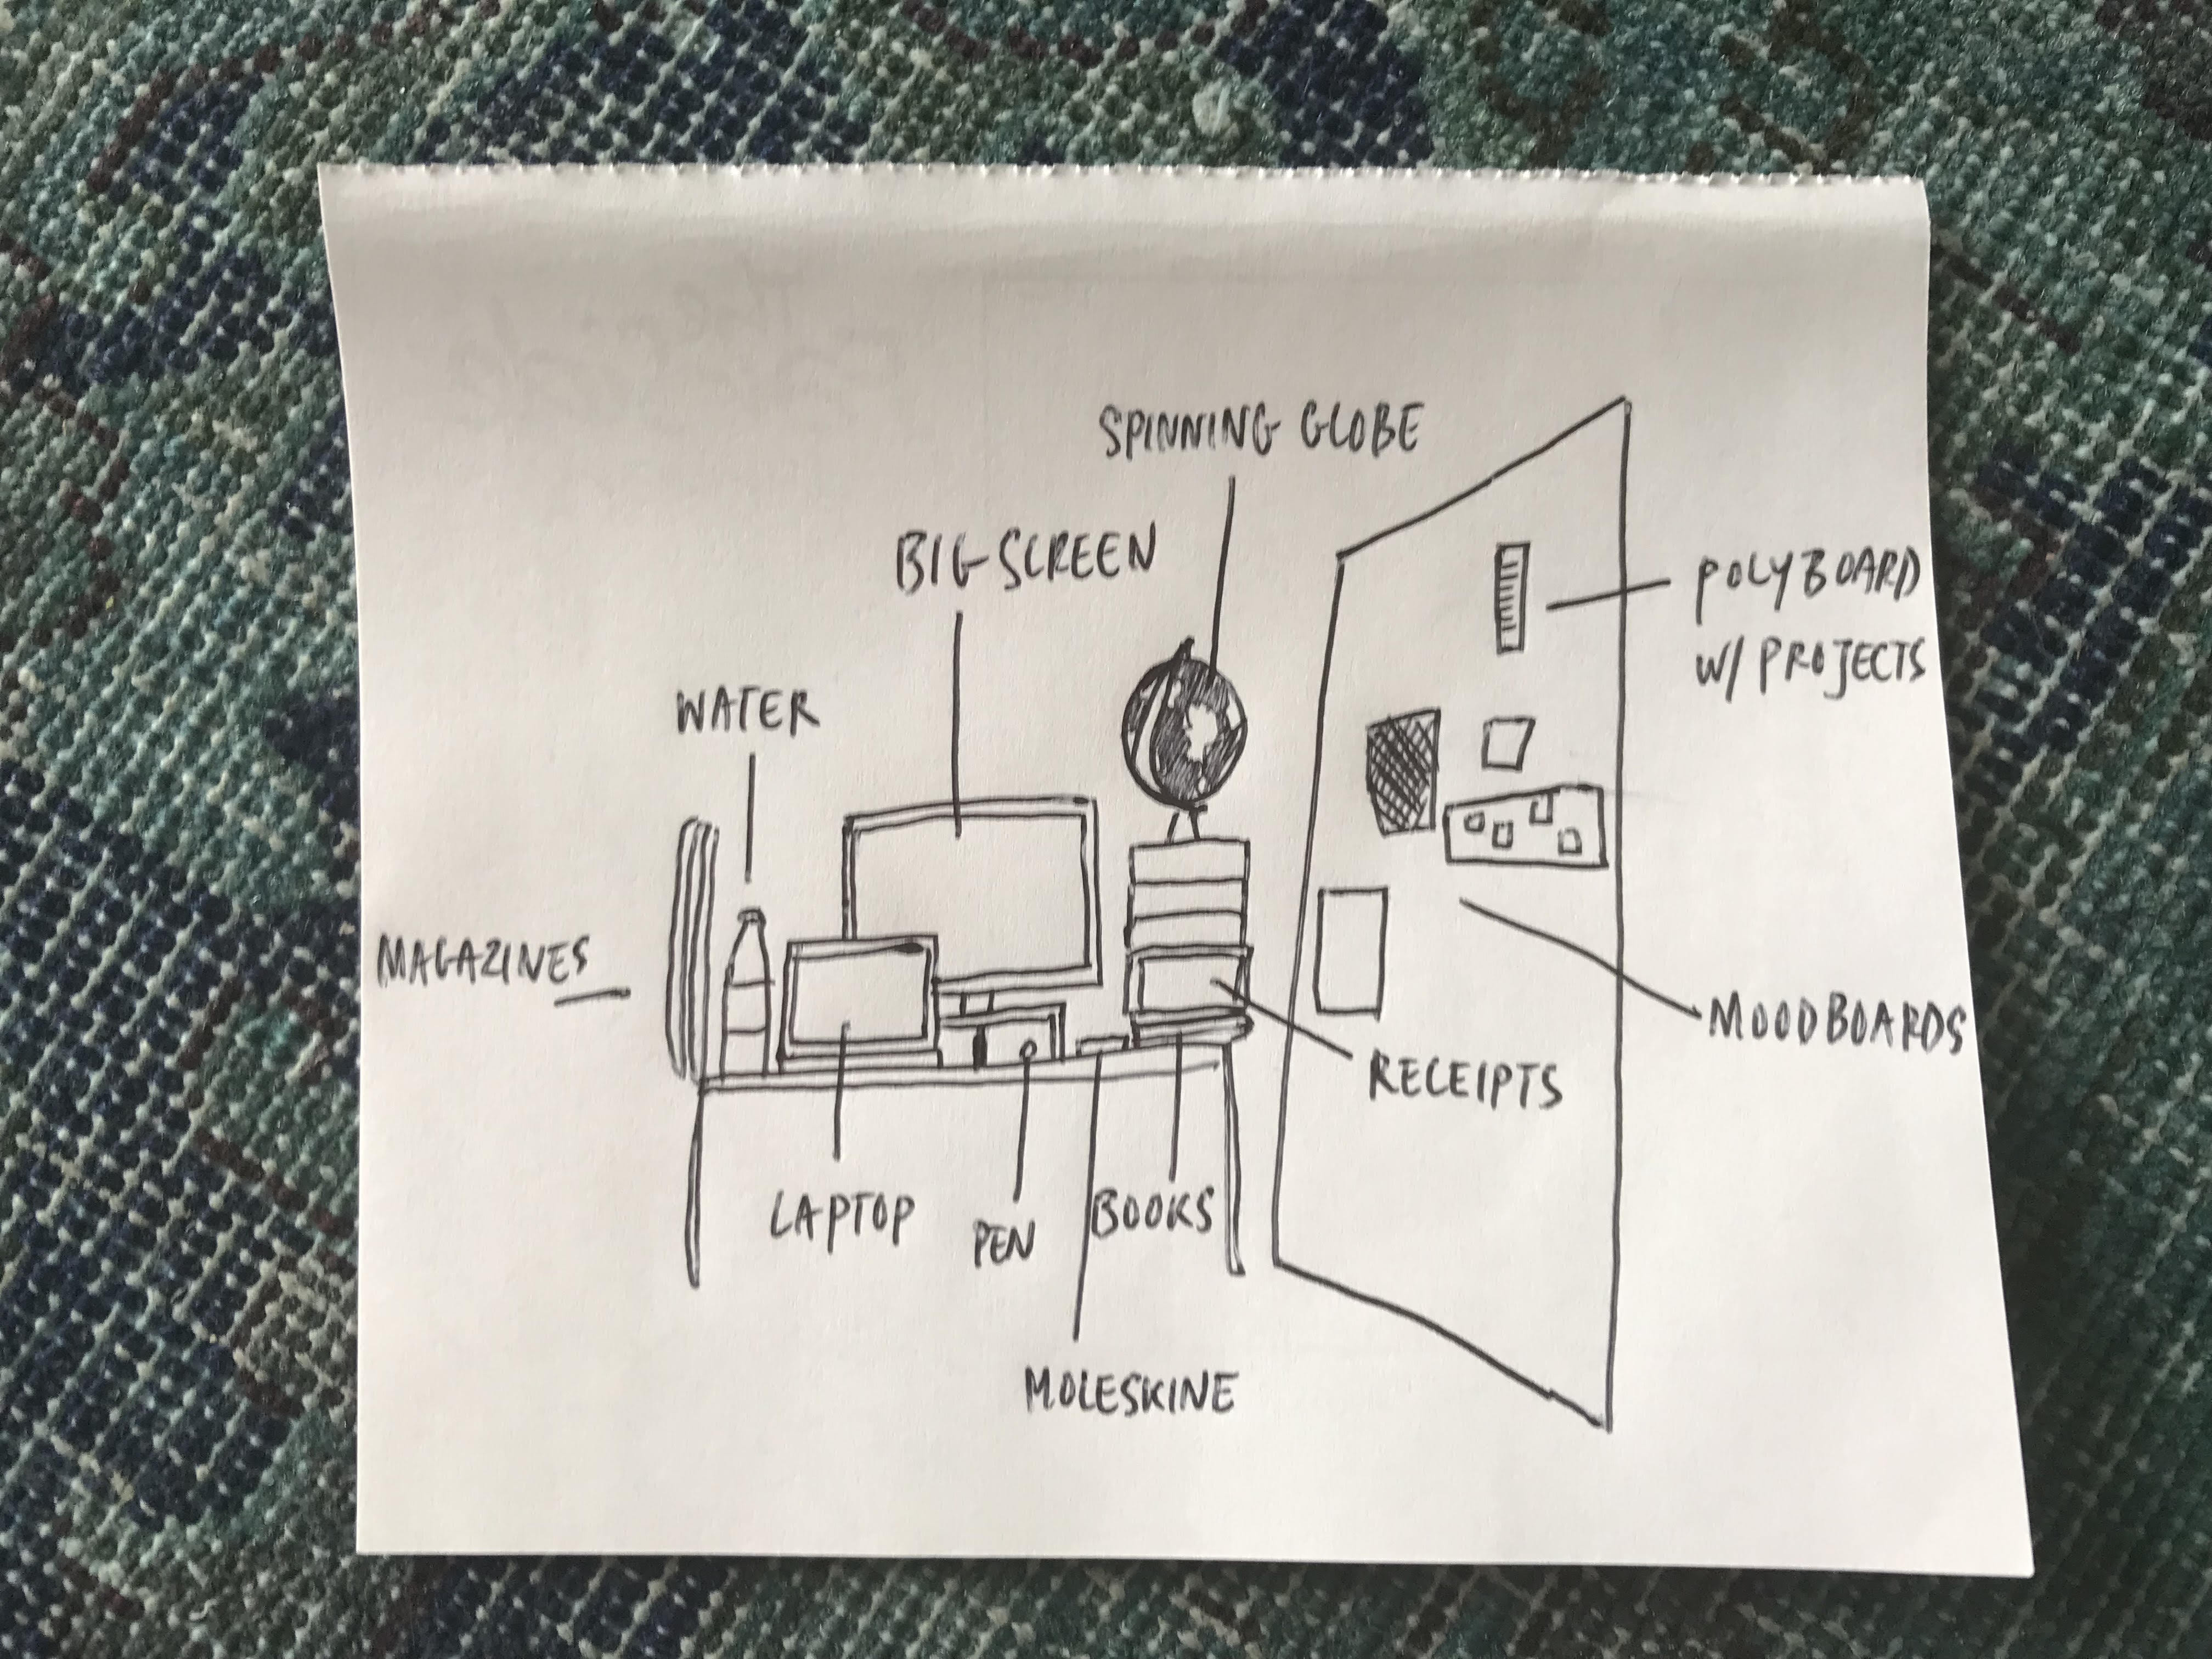 SPINNING GLOBE
BIG SCREEN
POLYBOARD
W/ PROJECTS
WATER
MAGAZINES
MOODBOARDS
RECEIPTS
LAPTOP
PEN
BOOKS
MOLESKINE